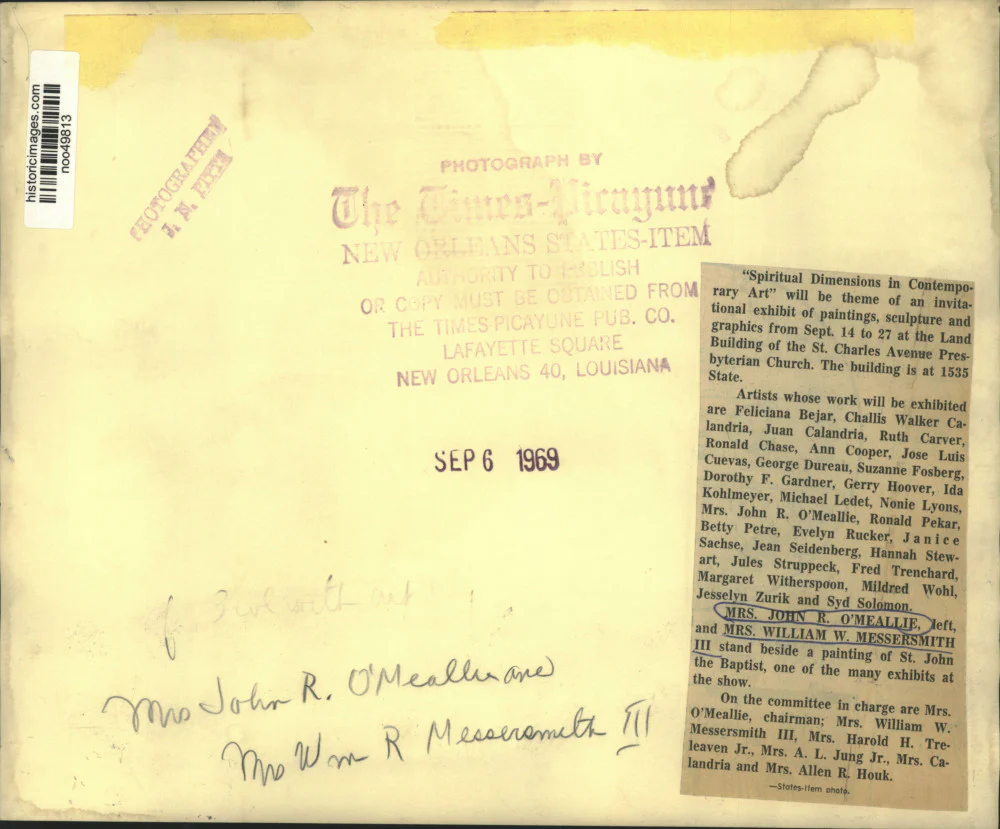 historicimages.com
noo49813
PHOTOGRAPHED
J. N.
PHOTOGRAPH BY
The Times-Picayune
NEW ORLEANS STATES-ITEM
AUTHORITY TO PUBLISH
OR COPY MUST BE OBTAINED FROM
THE TIMES PICAYUNE PUB. CO.
LAFAYETTE SQUARE
NEW ORLEANS 40, LOUISIANA
SEP 6 1969
"Spiritual Dimensions in Contempo-
rary Art" will be theme of an invita-
tional exhibit of paintings, sculpture and
graphics from Sept. 14 to 27 at the Land
Building of the St. Charles Avenue Pres-
byterian Church. The building is at 1535
State.
Artists whose work will be exhibited
are Feliciana Bejar, Challis Walker Ca-
landria, Juan Calandria, Ruth Carver,
Ronald Chase, Ann Cooper, Jose Luis
Cuevas, George Dureau, Suzanne Fosberg,
Dorothy F. Gardner, Gerry Hoover, Ida
Kohlmeyer, Michael Ledet, Nonie Lyons,
Mrs. John R. O'Meallie, Ronald Pekar,
Betty Petre, Evelyn Rucker, Janice
Sachse, Jean Seidenberg, Hannah Stew-
art, Jules Struppeck, Fred Trenchard,
Margaret Witherspoon, Mildred Wohl,
Jesselyn Zurik and Syd Solomon.
MRS. JOHN R. O'MEALLIE, left,
and MRS. WILLIAM W. MESSERSMITH
III stand beside a painting of St. John
the Baptist, one of the many exhibits at
the show.
On the committee in charge are Mrs.
O'Meallie, chairman; Mrs. William W.
Messersmith III, Mrs. Harold H. Tre-
leaven Jr., Mrs. A. L. Jung Jr., Mrs. Ca-
landria and Mrs. Allen R. Houk.
—States-Item photo.
with art
Mrs John R. O'Meallie and
Mrs Wm R Messersmith III